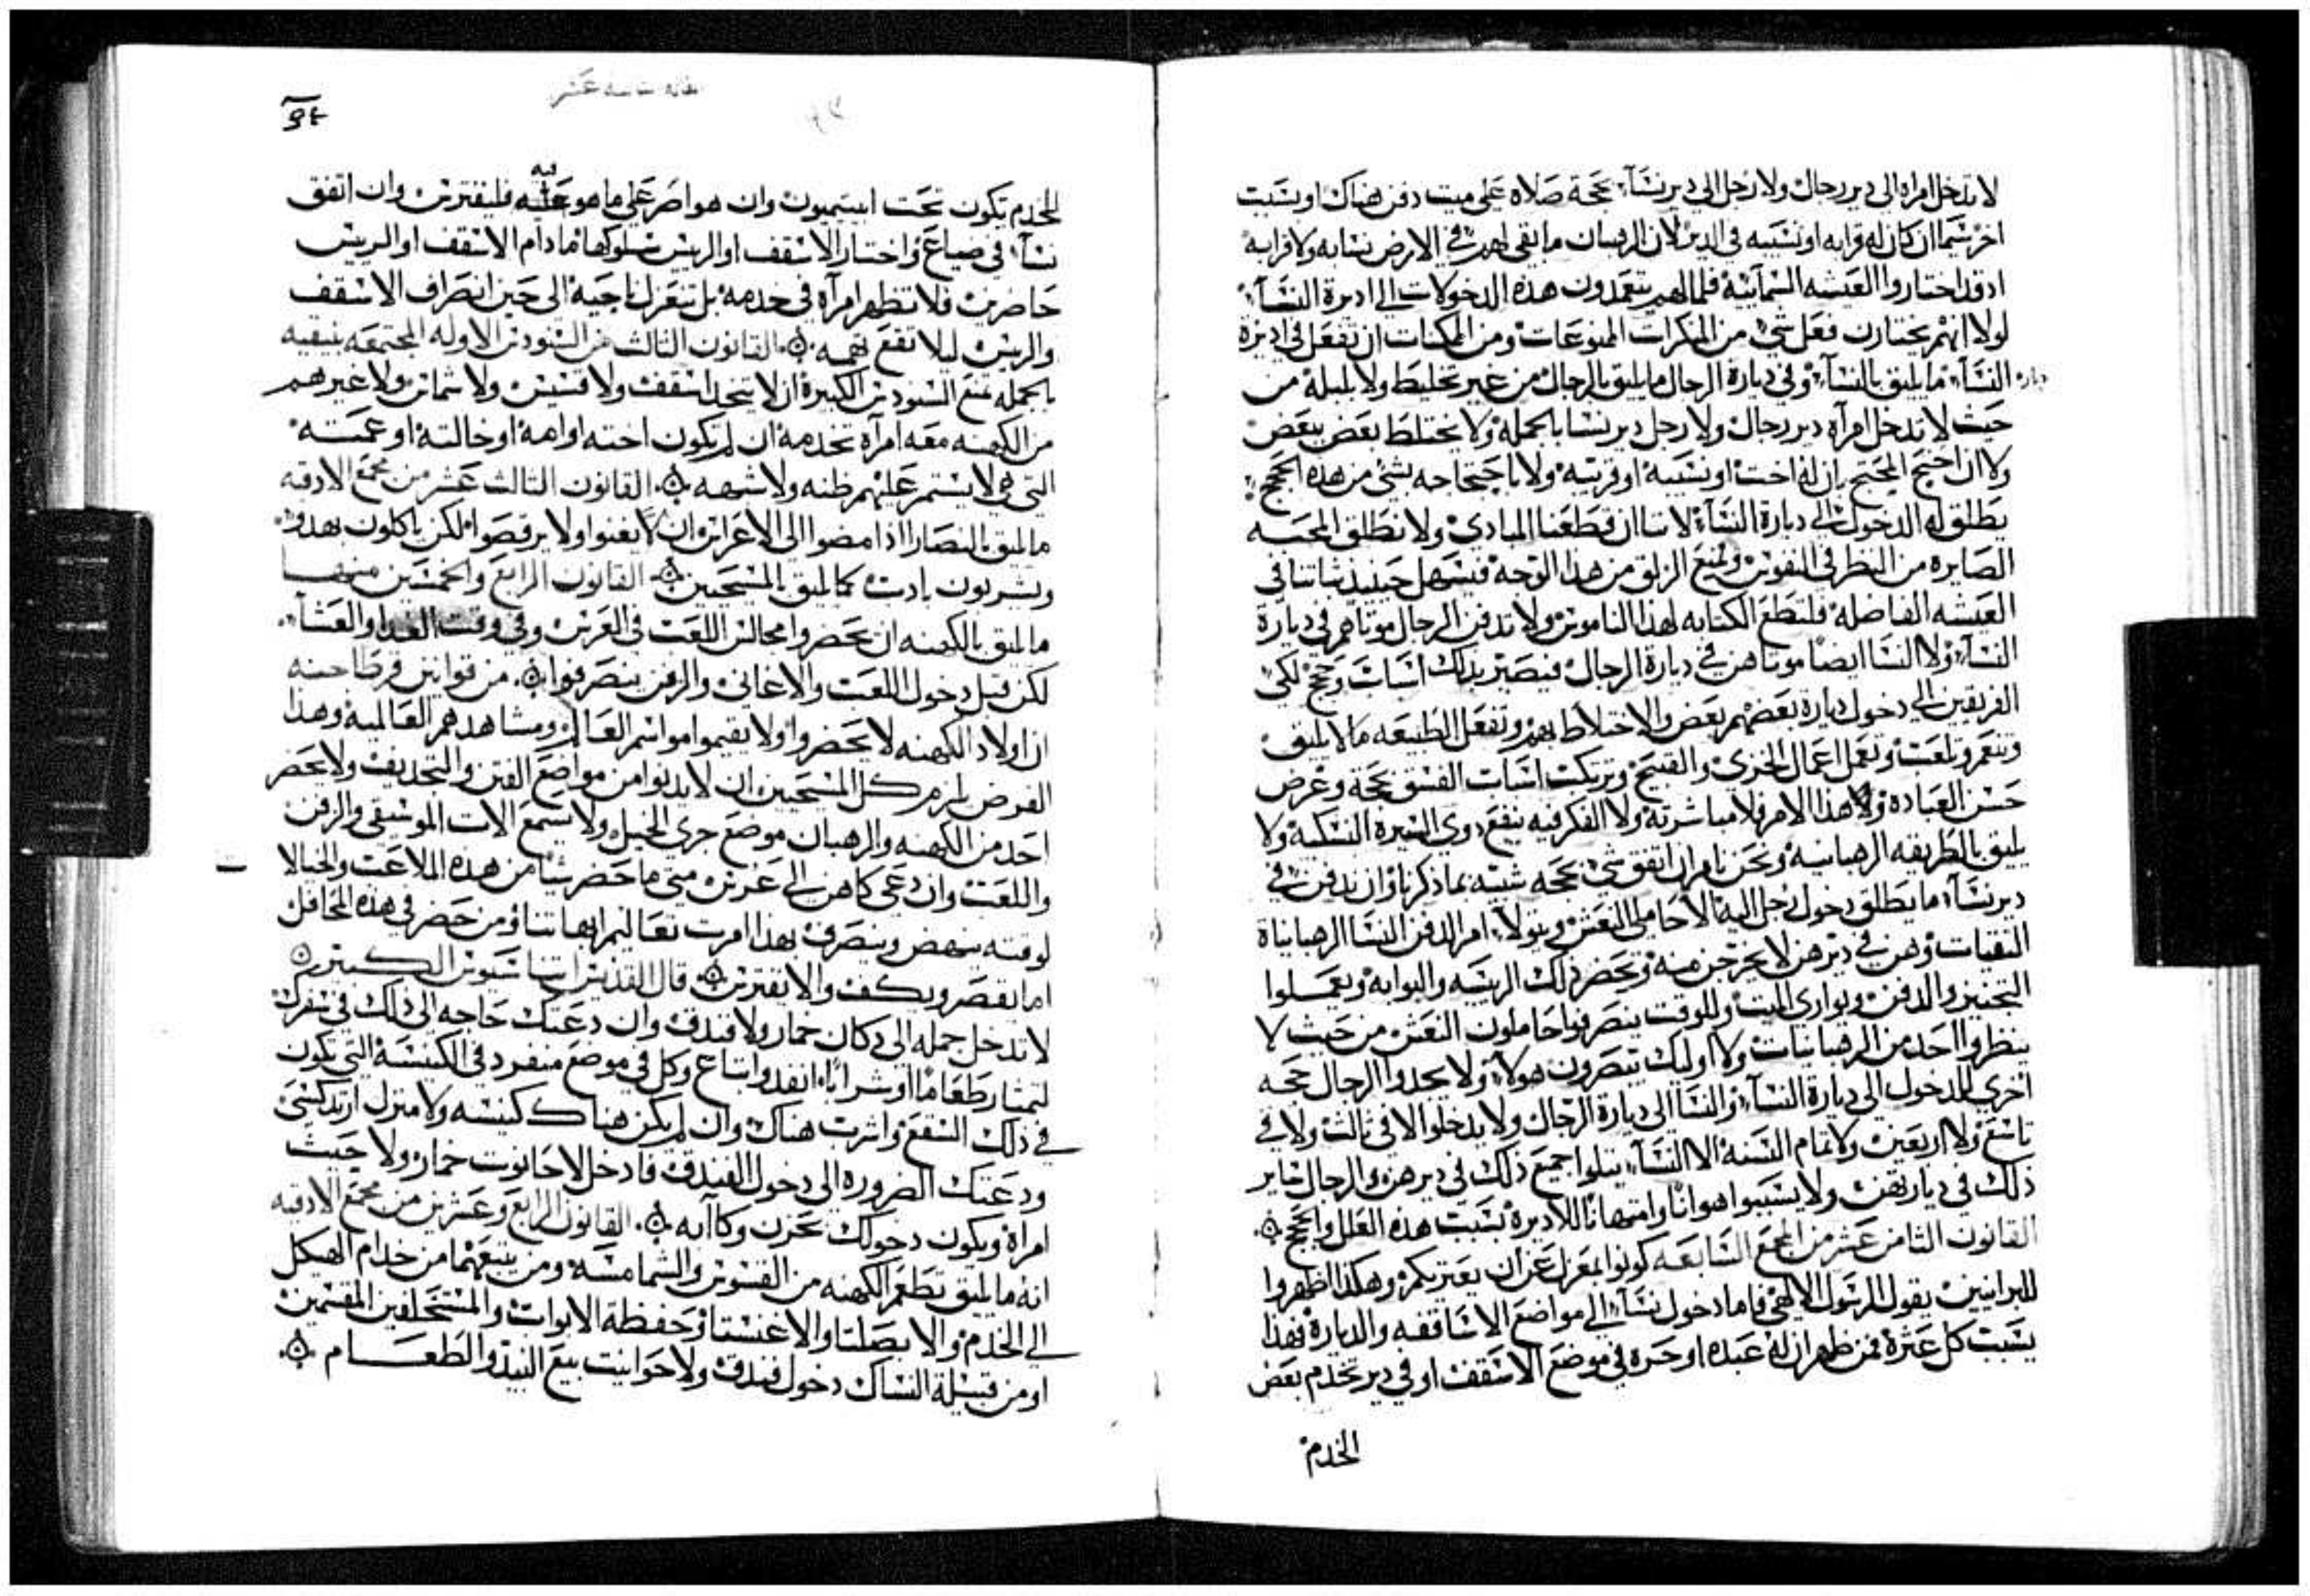 لا تدخل امراه الي دير رجال ولا رجل الي دير نسآ بحجة صلاه علي ميت دفن هناك او بسبب
اخر سيما ان كان له قرابه او نسيبه في الدير لان الرهبان ما بقي لهم في الارض نسابه ولا قرابه
اد قد اختاروا العيشه السمآييه فلما لهم يتعمدون هذه الدخولات الي اديرة النسآ
لولا انهم يختارن فعل شي من المنكرات الممنوعات ومن الممكنات ان تفعل في اديرة
النسآ ما يليق بالنسآ وفي ديارة الرجال ما يليق بالرجال من غير تخليط ولا بلبله من
حيث لا تدخل امرآه دير رجال ولا رجل دير نسا بالجمله ولا يختلط بعض ببعض
ولا ان احتج المحتج بان له اخت او نسيبه او قريبه ولا باحتجاجه بشي من هذه الحجج
يطلق له الدخول الي ديارة النسآ لاننا ان قطعنا المبادي ولا نطلق المحبه
الصايره من النظر في النفوس ولمنع الزلق من هذا الوجه فيسهل حينيذ ثباتنا في
العيشه الفاضله فلتطع الكتابه لهذا الناموس ولا تدفن الرجال موتاهم في ديارة
النسآ ولا النسا ايضا موتاهن في ديارة الرجال فيصير بذلك اسباب وحجج لكي
الفريقين الي دخول ديارة بعضهم بعض والاختلاط بهم وتفعل الطبيعه ما لا يليق
وتتعرو تلعب وتعمل اعمال الخزي والقبيح وترتكب اسباب الفسق بحجة وغرض
حسن العباده ولا هذا الامر فلا مباشرته ولا الفكر فيه ينفع دوي السيرة النسكيه ولا
يليق بالطريقه الرهبانيه ونحن نامر ان اتفق شي بحجه شبيه بما ذكرناوان يدفن في
دير نسآ ما يطلق دخول رجل اليه الا حاملي النعش ويتولا امر الدفن النسا الرهبانياة
النقيات وهن في ديرهن لا يخرجن منه وتحضر ذلك الريسه والبوابه ويعملوا
التجنيز والدفن ويواري الميت وللوقت ينصرفوا حاملون النعش من حيث لا
ينظروا احد من الرهبانيات ولا اوليك يتصرون هولا ولا يجدوا الرجال حجه
اخري للدخول الي ديارة النسآ والنسآ الي ديارة الرجال ولا يدخلوا لا في ثالث ولا في
تاسع ولا اربعين ولا تمام السنه الا النسآ يتلوا جميع ذلك في ديرهن والرجال
ذلك في دياريهن ولا يسببوا هوانا وامتهانا للاديرة بسبب هذه العلل والحجج
القانون الثامن عشر من المجمع السابعه كونوا بمعزل عن ان يعتريكم وهكذا اظهروا
للبرانيين يقول الرسول الالاهي فاما دخول نسآ الي مواضع الاساقفه والديارة فهذا
يسبب كل عثرة فمن ظهر ان له عبده او حره في موضع الاسقف او في دير تخدم بعض
الخدم
الخدم تكون تحت ابيتيميون وان هو اصر علي ما هو عليه فليفترس وان اتفق
نسآ في ضياع واختار الاسقف او الريس سلوكها ما دام الاسقف او الريس
حاضرين فلا تظهر امرآه في خدمه بل تنعزل ناحيه الي حين انصراف الاسقف
والريس ليلا تقع تهمه القانون الثالث من السنودس الاوله المجتمعه بنيقيه
بالجمله تمنع السنودس الكبيرة ان لا يتخد اسقف ولا قسيس ولا شماس ولا غيرهم
من الكهنه معه امرآه تخدمه ان لم تكون اخته او امه او خالته او عمته
التي هي لا يستمر عليهم ظنه ولا شبهه القانون الثالث عشر من مجمع الادقيه
ما يليق بالنصارا اذا مضوا الي الاعراس ان يغنوا ولا يرقصوا لكن ياكلون بهدو
ويشربون بادب كما يليق بالمسيحيين القانون الرابع والخمسين منهما
ما يليق بالكهنه ان يحضروا مجالس اللعب في العرس وفي وقت الغدا والعشآ
لكن قبل دخول اللعب والاغاني والزفن ينصرفوا من قوانين قرطاجنه
ان اولاد الكهنه لا يحضروا ولا يقيموا مواسم العالم ومشاهدهم العالميه وهذا
الفرض يلزم كل المسيحيين ان لا يدنوا من مواضع الفتن والتجديف ولا يحضر
احد من الكهنه والرهبان موضع جري الخيل ولا يسمع الات الموسيقي والزفن
واللعب وان دعي كاهن الي عرس متي ما حضر شيا من هذه الملاعب والخيالا
لوقته ينهض وينصرف بهذا امرت تعاليم ابهاتنا ومن حضر في هذه المحافل
اما يقصر ويكف والا يفترس قال القديس باسيليوس الكبير
لا تدخل جمله الي دكان خمار ولا فندق وان دعتك حاجه الي ذلك في سفرك
لتمتار طعاما او شرابا انفد وابتاع وكل في موضع منفرد في الكنيسه التي تكون
في ذلك السقع واترب هناك وان لم يكن هناك كنيسه ولا منزل ارتدكسي
ودعتك الضروره الي دخول الفندق فادخل لا حانوت خمار ولا حيث
امراة ويكون دخولك بحزن وكاآبه القانون الرابع وعشرين من مجمع الادقيه
انه ما يليق بطغم الكهنه من القسوس والشمامسه ومن يتبعهما من خدام الهيكل
الي الخدم والابصلتا والاغنسطا وحفظة الابواب والمستحلفين المقسمين
او من قبيلة النساك دخول فندق ولا حوانيت بيع النبيذ والطعام